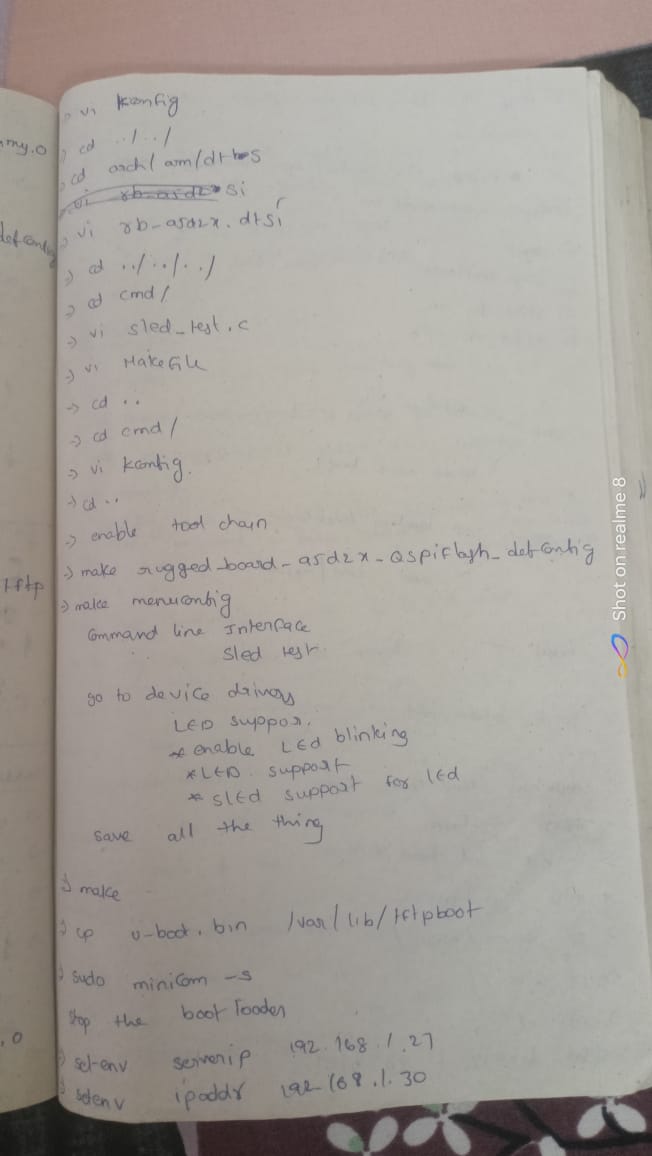 my.o
defconfig
tftp
.o
→ vi kconfig
→ cd ../../
→ cd arch/arm/dts
→ vi rb-a5d2x si
→ vi rb-a5d2x.dtsi
→ cd ../../../
→ cd cmd/
→ vi sled_test.c
→ vi Makefile
→ cd ..
→ cd cmd/
→ vi kconfig.
→ cd ..
→ enable tool chain
→ make rugged_board-a5d2x-qspiflash_defconfig
→ make menuconfig
Command line Interface
Sled test
go to device drivers
LED suppor.
* enable LEd blinking
* LED support
* sled support for led
save all the thing
→ make
→ cp u-boot.bin /var/lib/tftpboot
→ sudo minicom -s
stop the boot loader
→ set-env serverip 192.168.1.27
→ setenv ipaddr 192.168.1.30
Shot on realme 8